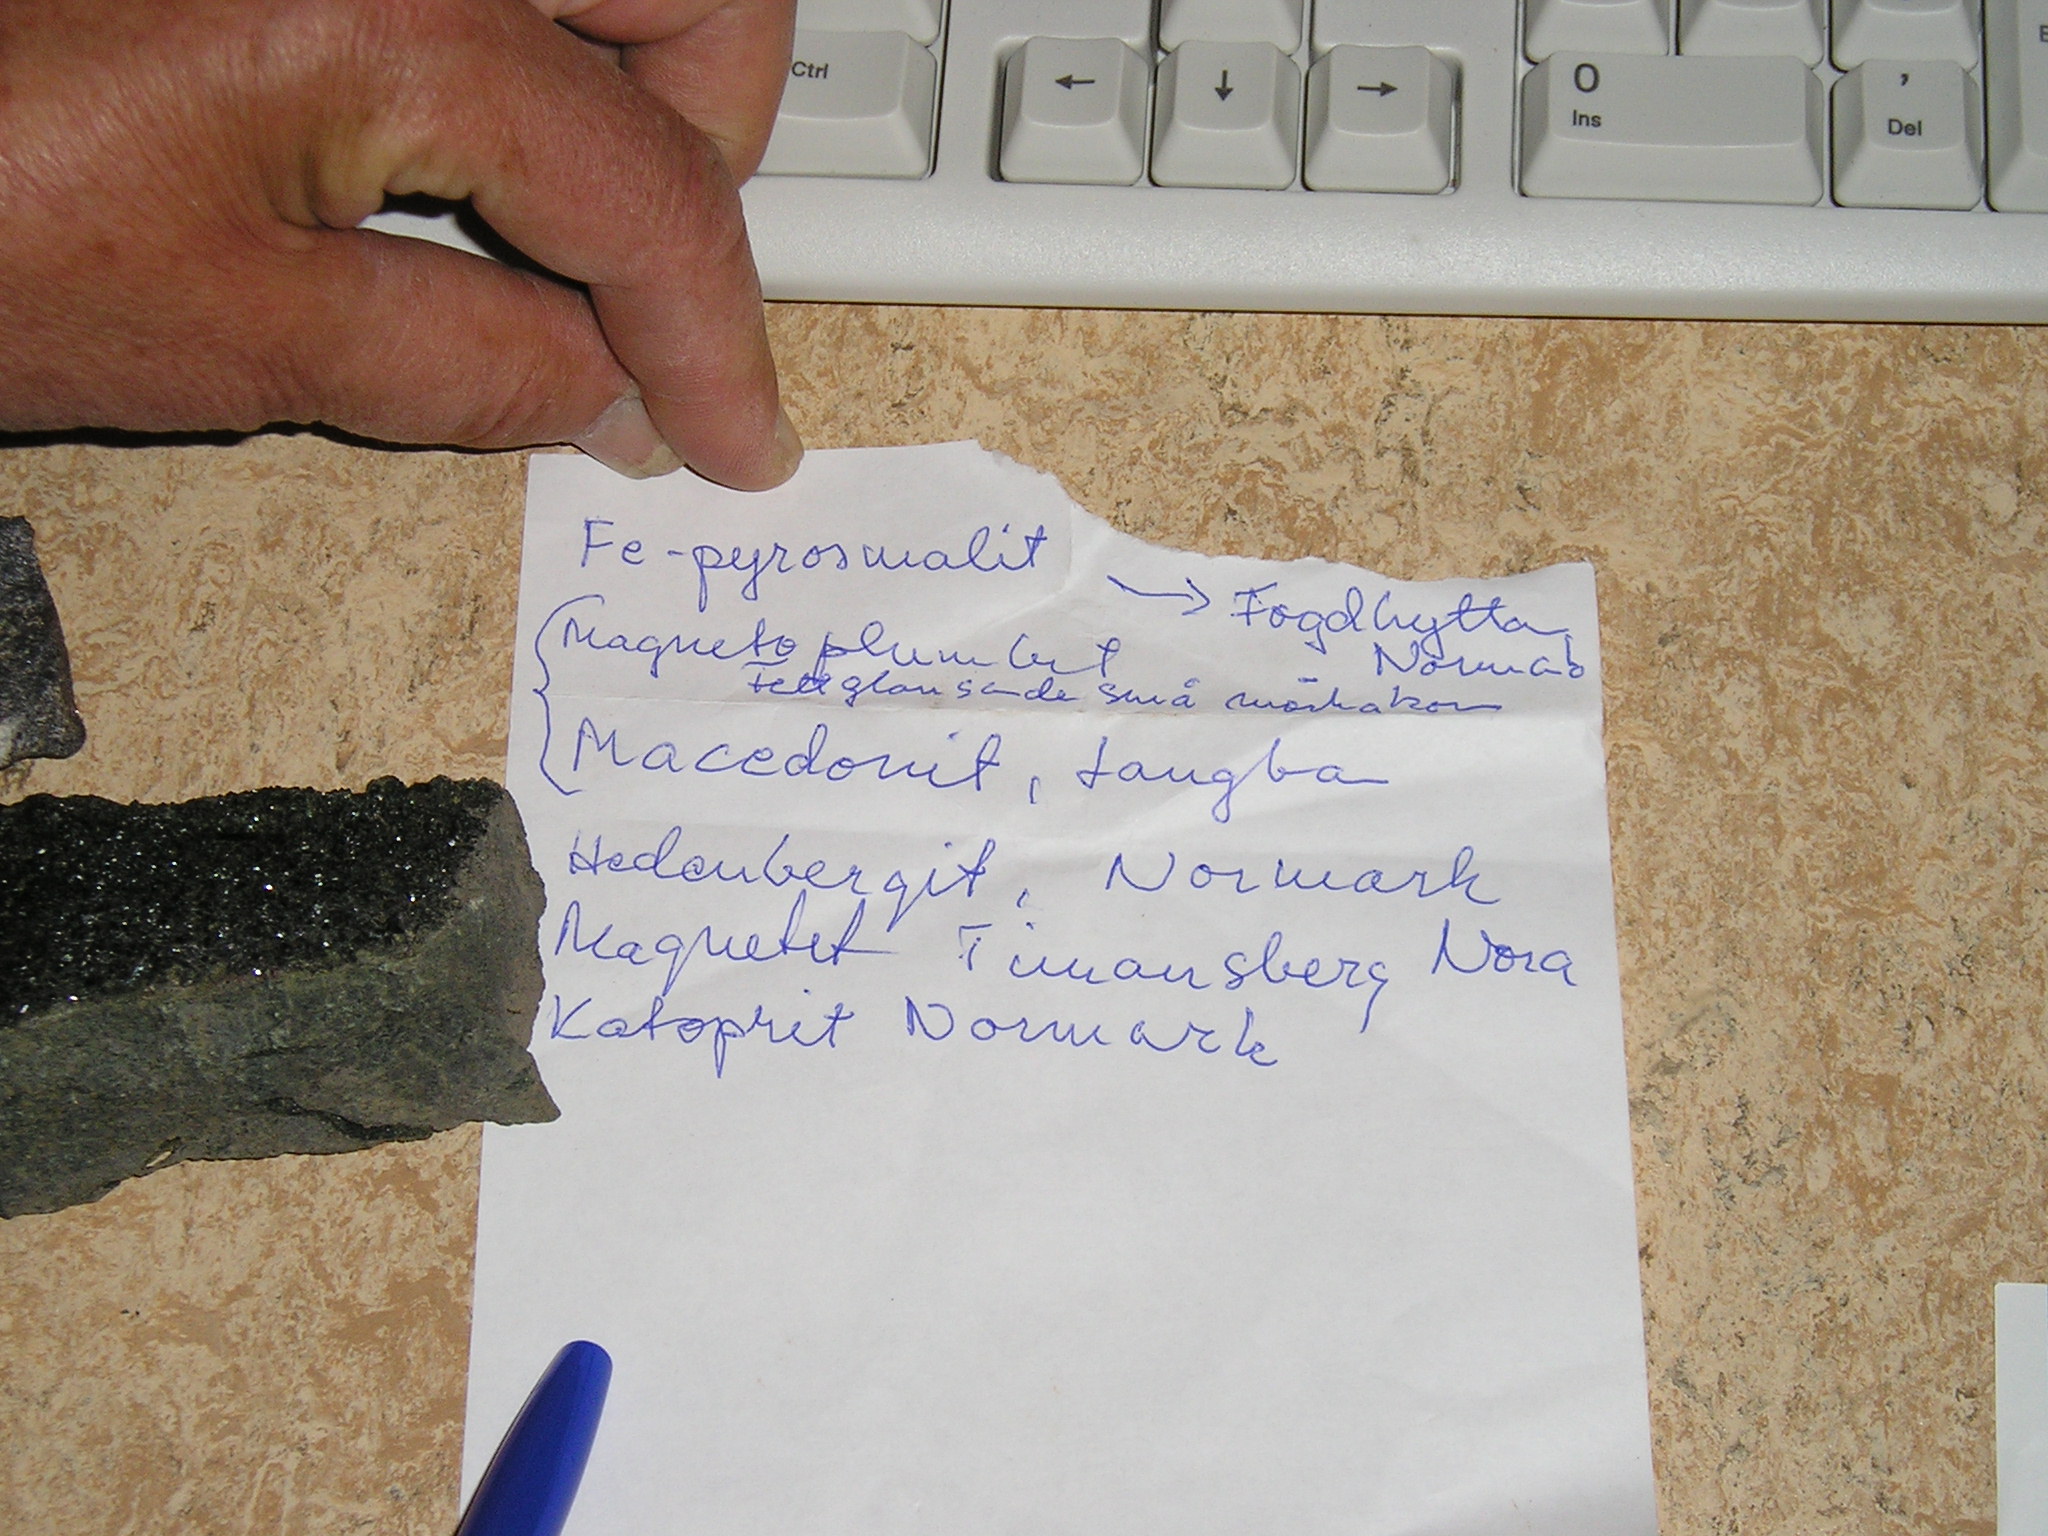 Ctrl
← ↓ →
0
Ins
,
Del
Fe-pyrosmalit
→ Fogdhytta,
Magnetoplumbit
Fettglänsande små mörka korn
Macedonit, Långba
Hedenbergit, Normark
Magnetit Timansberg Nora
Katoprit Normark